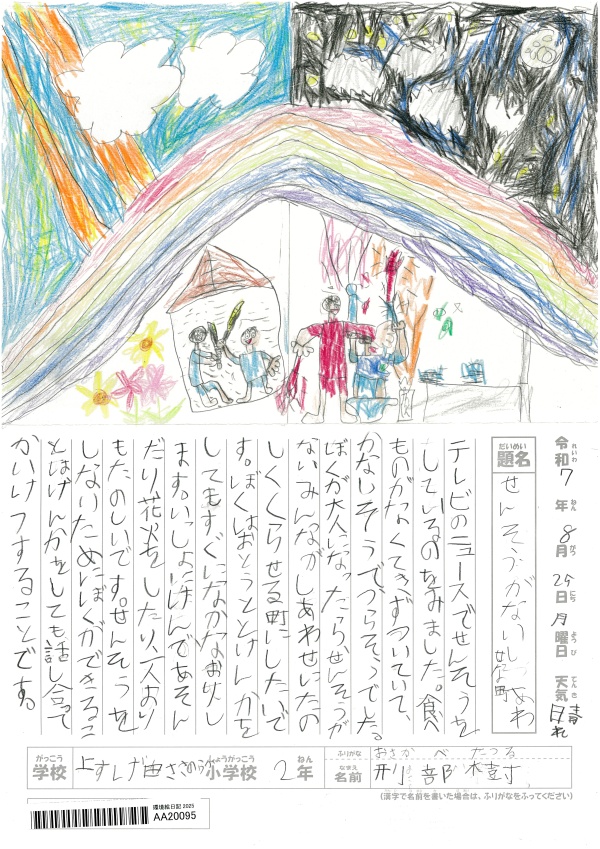 令和7年8月25日月曜日 天気晴れ
れいわ ねん がつ にち ようび てんき
だいめい
題名
せんそうがないしあわ
せな町
テレビのニュースでせんそうを
しているのをみました。食べ
ものがなくてきずついていて、
かなしそうでつらそうでした。
ぼくが大人になったらせんそうが
ないみんながしあわせにたの
しくくらせる町にしたいで
す。ぼくはおとうととけんかを
してもすぐになかなおりし
ます。いっしょにけんであそん
だり花火をしたり、一人より
もたのしいです。せんそうを
しないためにぼくができるこ
とはけんかをしても話し合って
かいけつすることです。
がっこう しょうがっこう ねん
学校 上すげ田ささのおか小学校 2年
ふりがな おさかべ たつる
なまえ
名前 刑部 樹
(漢字で名前を書いた場合は、ふりがなをふってください)
環境絵日記 2025
AA20095